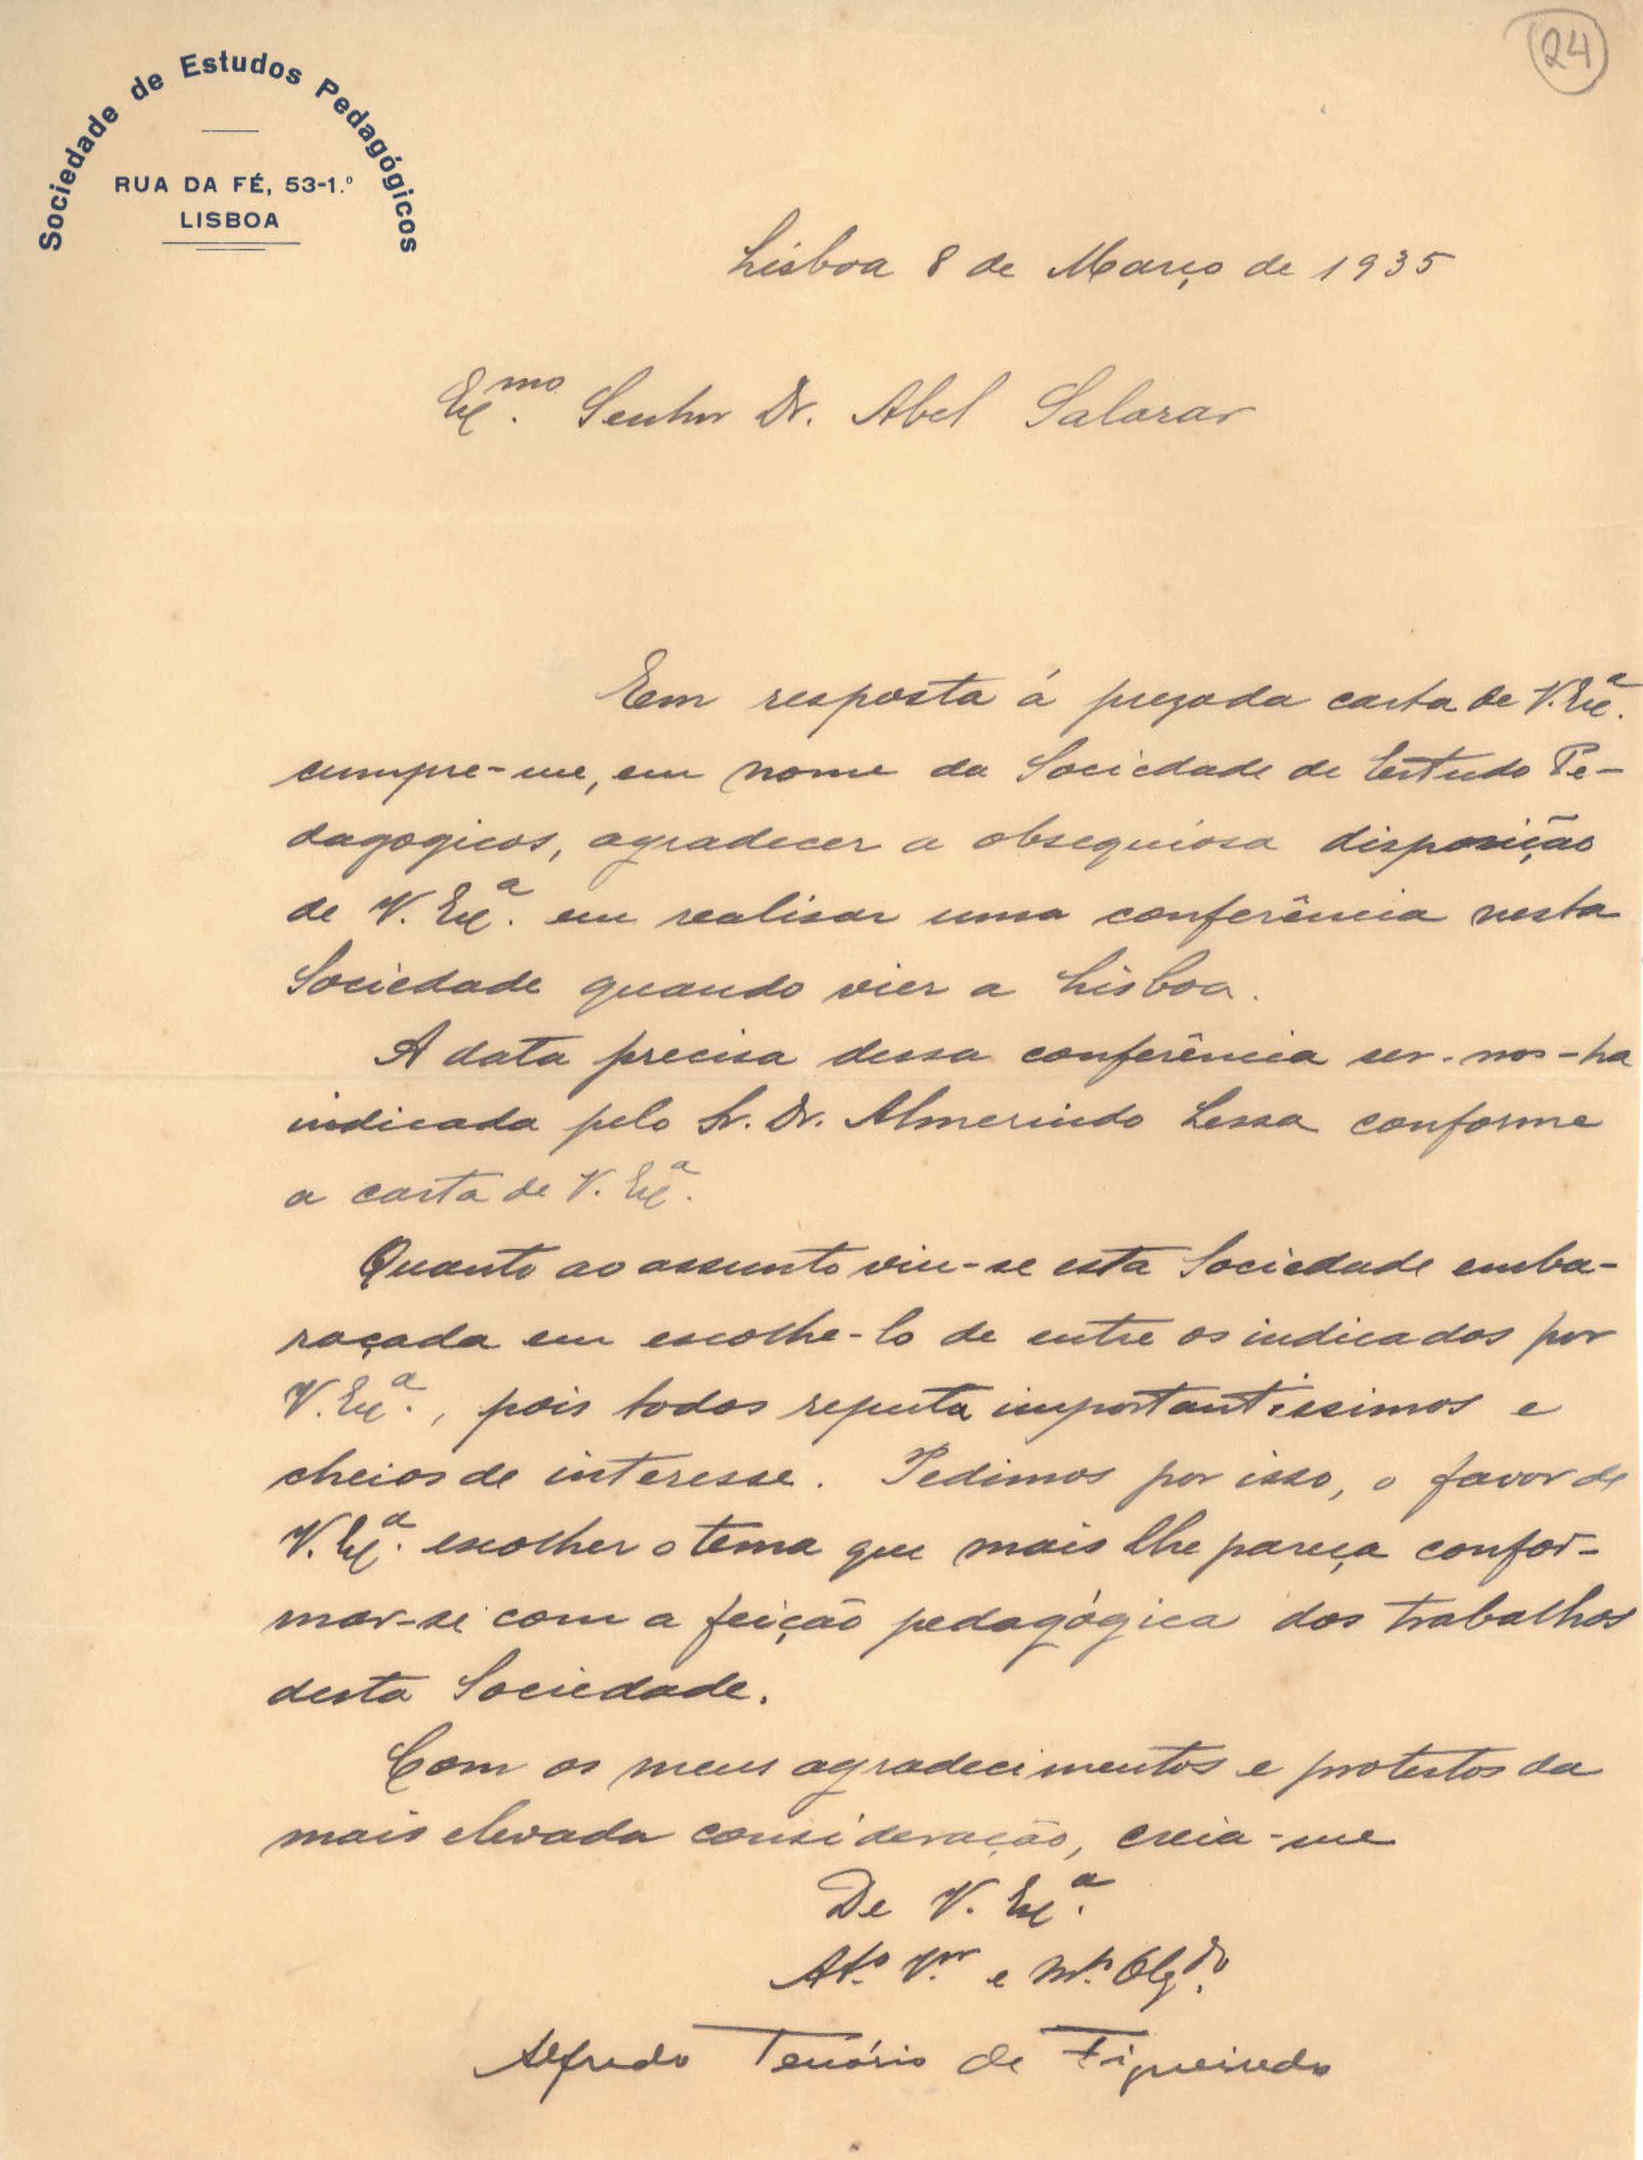 24
Sociedade de Estudos Pedagógicos
RUA DA FÉ, 53-1.º
LISBOA
Lisboa 8 de Março de 1935
Ex.mo Senhor Dr. Abel Salazar
Em resposta á prezada carta de V. Ex.a
cumpre-me, em nome da Sociedade de Estudo Pe-
dagogicos, agradecer a obsequiosa disposição
de V. Ex.a em realisar uma conferência nesta
Sociedade quando vier a Lisboa.
A data precisa dessa conferência ser-nos-ha
indicada pelo Sr. Dr. Almerindo Lessa conforme
a carta de V. Ex.a
Quanto ao assunto viu-se esta Sociedade emba-
raçada em escolhe-lo de entre os indicados por
V. Ex.a, pois todos reputa importantissimos e
cheios de interesse. Pedimos por isso, o favor de
V. Ex.a escolher o tema que mais lhe pareça confor-
mar-se com a feição pedagógica dos trabalhos
desta Sociedade.
Com os meus agradecimentos e protestos da
mais elevada consideração, creia-me
De V. Ex.a
At.º V.or e M.to Obg.do
Alfredo Tenório de Figueiredo